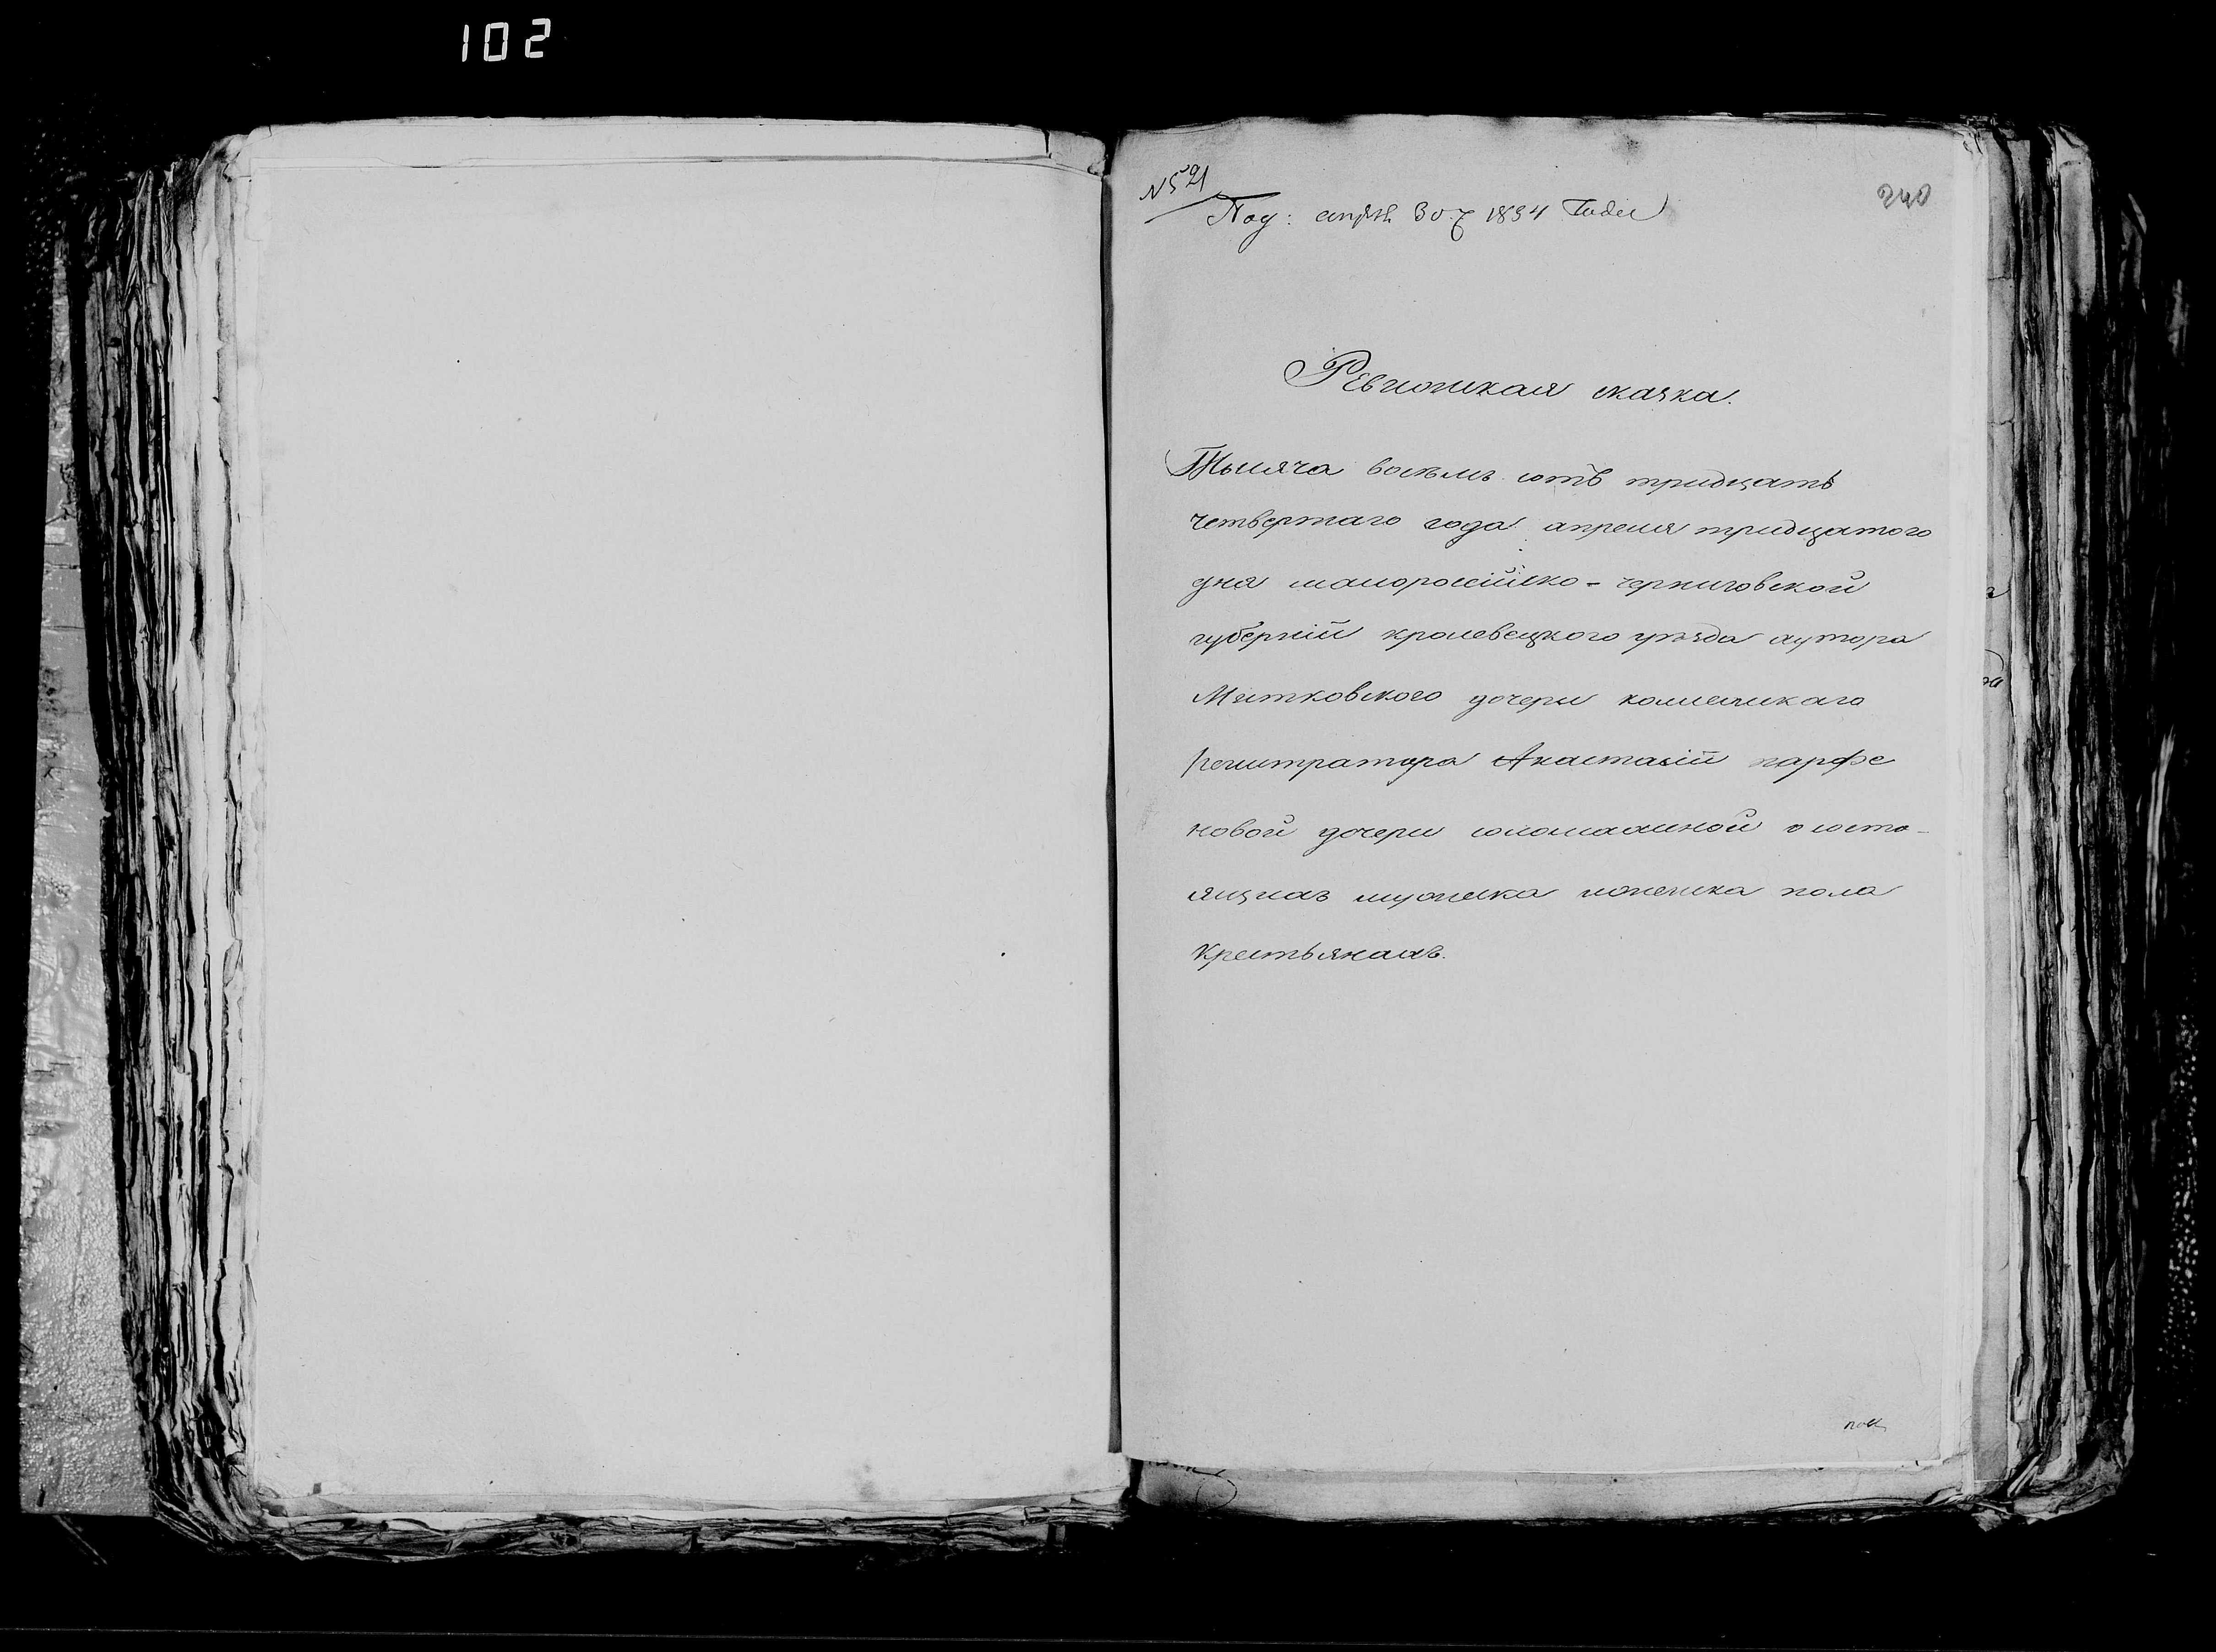 102
№ 21
240
Под: апрѣл 30 1834 Года
Ревизская сказка.
Тысяча восемь сотъ тридцать
четвертаго года апреля тридцатого
дня малоросійско-черниговской
губерній кролевецкого уѣзда хутора
Мытковского дочери колежскаго
регистратора Анастасій парфе
новой дочери соломахиной о состо-
ящихъ мужеска иженска пола
Крестьянахъ.